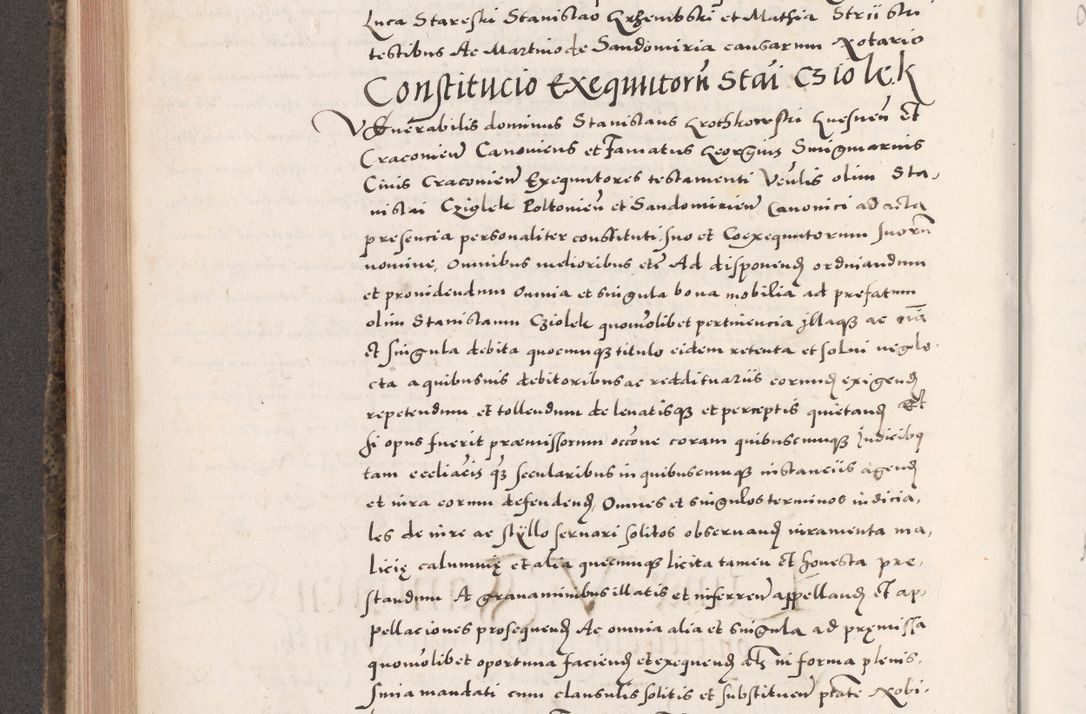 Luca Stareski Stanislao Krzhenibski et Mathia Strij
testibus Ac Martino de Sandomiria causarum Notario
Constitucio Exequutorũ Stãi Cziolek
Venerabilis dominus Stanislaus Krothkowski Gnesneñ Et
Craconieñ Canonicus et Famatus Georgius Smigmarnis
Civis Craconieñ Exequutores testamenti Veñlis olim Sta,
nislai Cziolek Poltonieñ et Sandomirieñ Canonici ad acta
presencia personaliter constituti suo et Coexequutorum suorũ
nomine, Omnibus melioribus etc̃ Ad disponendꝫ ordinandum
et providendum Omnia et singula bona mobilia ad prefatum
olim Stanislaum Cziolek quomolibet pertinencia illaqꝫ ac oñia
Et singula debita quocumqꝫ titulo eidem retenta et solui negle,
cta a quibusuis debitoribus ac reddituariis eorumdꝫ exigendꝫ
repetendum et tollendum de levatisqꝫ et perceptis quietandꝫ Et
si opus fuerit præmissorum occõne coram quibuscumqꝫ Judicibꝫ
tam eccliãcis qꝫ secularibus in quibuscumqꝫ instanciis agendꝫ
et iura eorum defendendꝫ, Omnes et singulos terminos iudicia,
les de iure ac styllo servari solitos observandꝫ iuramenta ma,
licię calumnię et alia quecumqꝫ licita tamen Et honesta pre,
standum A gravaminibus illatis et inferreñ appellandꝫ Et ap,
pellaciones prosequendꝫ Ac omnia alia et singula ad pręmissa
quomolibet oportuna faciendꝫ et exequendꝫ in forma plenis,
simia mandati cum clausulis solitis et substitueñ ptãte Nobi,